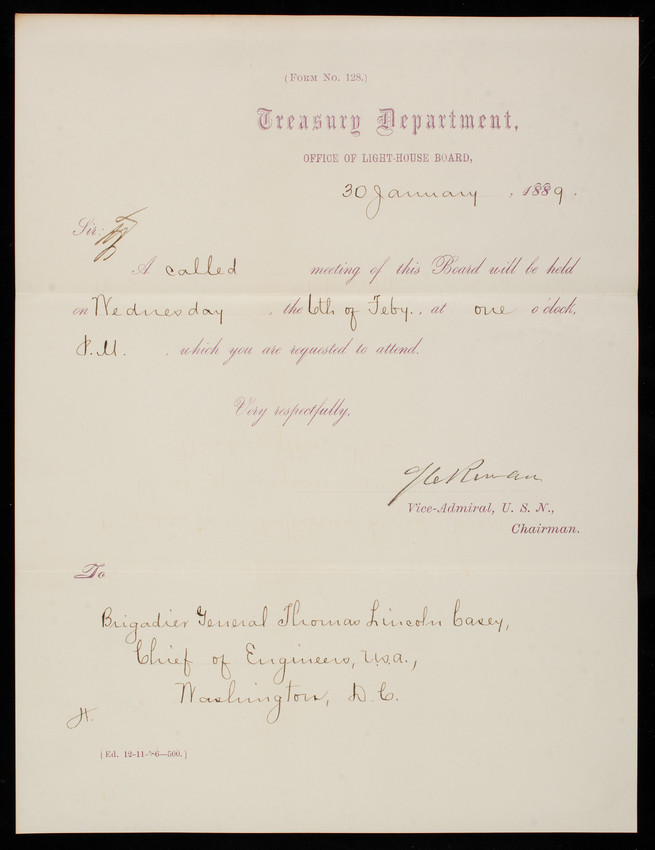 (FORM NO. 128.)
Treasury Department,
OFFICE OF LIGHT-HOUSE BOARD,
30 January, 1889.
Sir:
A called meeting of this Board will be held
on Wednesday, the 6th of Feby., at one o'clock,
P.M., which you are requested to attend.
Very respectfully,
Rowan
Vice-Admiral, U. S. N.,
Chairman.
To
Brigadier General Thomas Lincoln Casey,
Chief of Engineers, U.S.A.,
Washington, D.C.
H.
(Ed. 12-11-'86—500.)